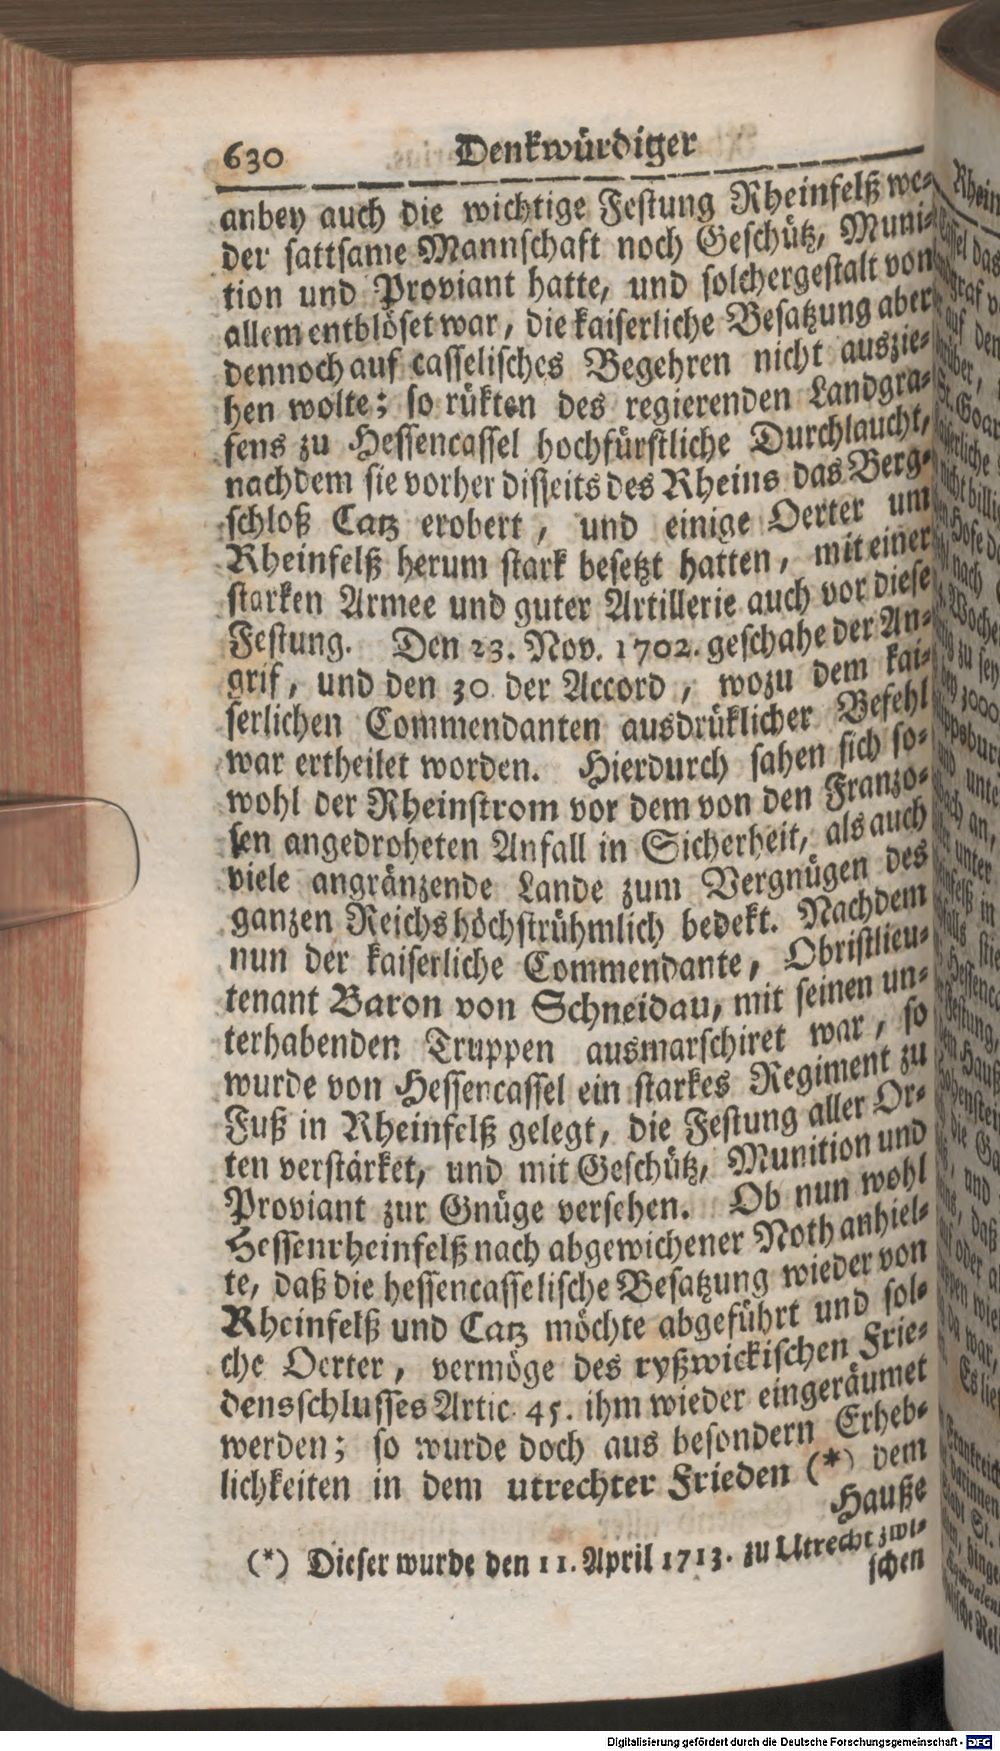 630 Denkwürdiger
anbey auch die wichtige Festung Rheinfelß we-
der sattsame Mannschaft noch Geschütz, Muni-
tion und Proviant hatte, und solchergestalt von
allem entblöset war, die kaiserliche Besatzung aber
dennoch auf casselisches Begehren nicht auszie-
hen wolte; so rükten des regierenden Landgra-
fens zu Hessencassel hochfürstliche Durchlaucht,
nachdem sie vorher disseits des Rheins das Berg-
schloß Catz erobert, und einige Oerter um
Rheinfelß herum stark besetzt hatten, mit einer
starken Armee und guter Artillerie auch vor diese
Festung. Den 23. Nov. 1702. geschahe der An-
grif, und den 30 der Accord, wozu dem kai-
serlichen Commendanten ausdrüklicher Befehl
war ertheilet worden. Hierdurch sahen sich so-
wohl der Rheinstrom vor dem von den Franzo-
sen angedroheten Anfall in Sicherheit, als auch
viele angränzende Lande zum Vergnügen des
ganzen Reichs höchstrühmlich bedekt. Nachdem
nun der kaiserliche Commendante, Obristlieu-
tenant Baron von Schneidau, mit seinen un-
terhabenden Truppen ausmarschiret war, so
wurde von Hessencassel ein starkes Regiment zu
Fuß in Rheinfelß gelegt, die Festung aller Or-
ten verstärket, und mit Geschütz, Munition und
Proviant zur Gnüge versehen. Ob nun wohl
Hessenrheinfelß nach abgewichener Noth anhiel-
te, daß die hessencasselische Besatzung wieder von
Rheinfelß und Catz möchte abgeführt und sol-
che Oerter, vermöge des ryßwickischen Frie-
densschlusses Artic. 45. ihm wieder eingeräumet
werden; so wurde doch aus besondern Erheb-
lichkeiten in dem utrechter Frieden (*) dem
Hauße
(*) Dieser wurde den 11. April 1713. zu Utrecht zwi-
schen
Digitalisierung gefördert durch die Deutsche Forschungsgemeinschaft - DFG